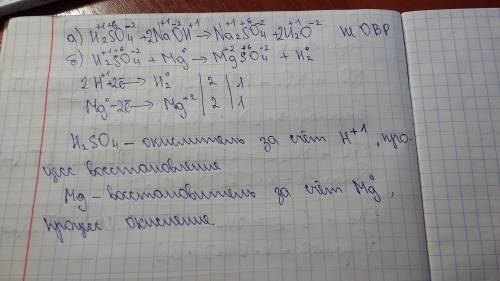 а) H₂⁺¹S⁺⁶O₄⁻² + 2Na⁺¹O⁻²H⁺¹ → Na₂⁺¹S⁺⁶O₄⁻² + 2H₂⁺¹O⁻² не ОВР
б) H₂⁺¹S⁺⁶O₄⁻² + Mg⁰ → Mg⁺²S⁺⁶O₄⁻² + H₂⁰
2H⁺¹+2ē → H₂⁰ | 2 | 1
Mg⁰-2ē → Mg⁺² | 2 | 1
H₂SO₄ - окислитель за счёт H⁺¹, про-
цесс восстановление
Mg - восстановитель за счёт Mg⁰,
процесс окисление